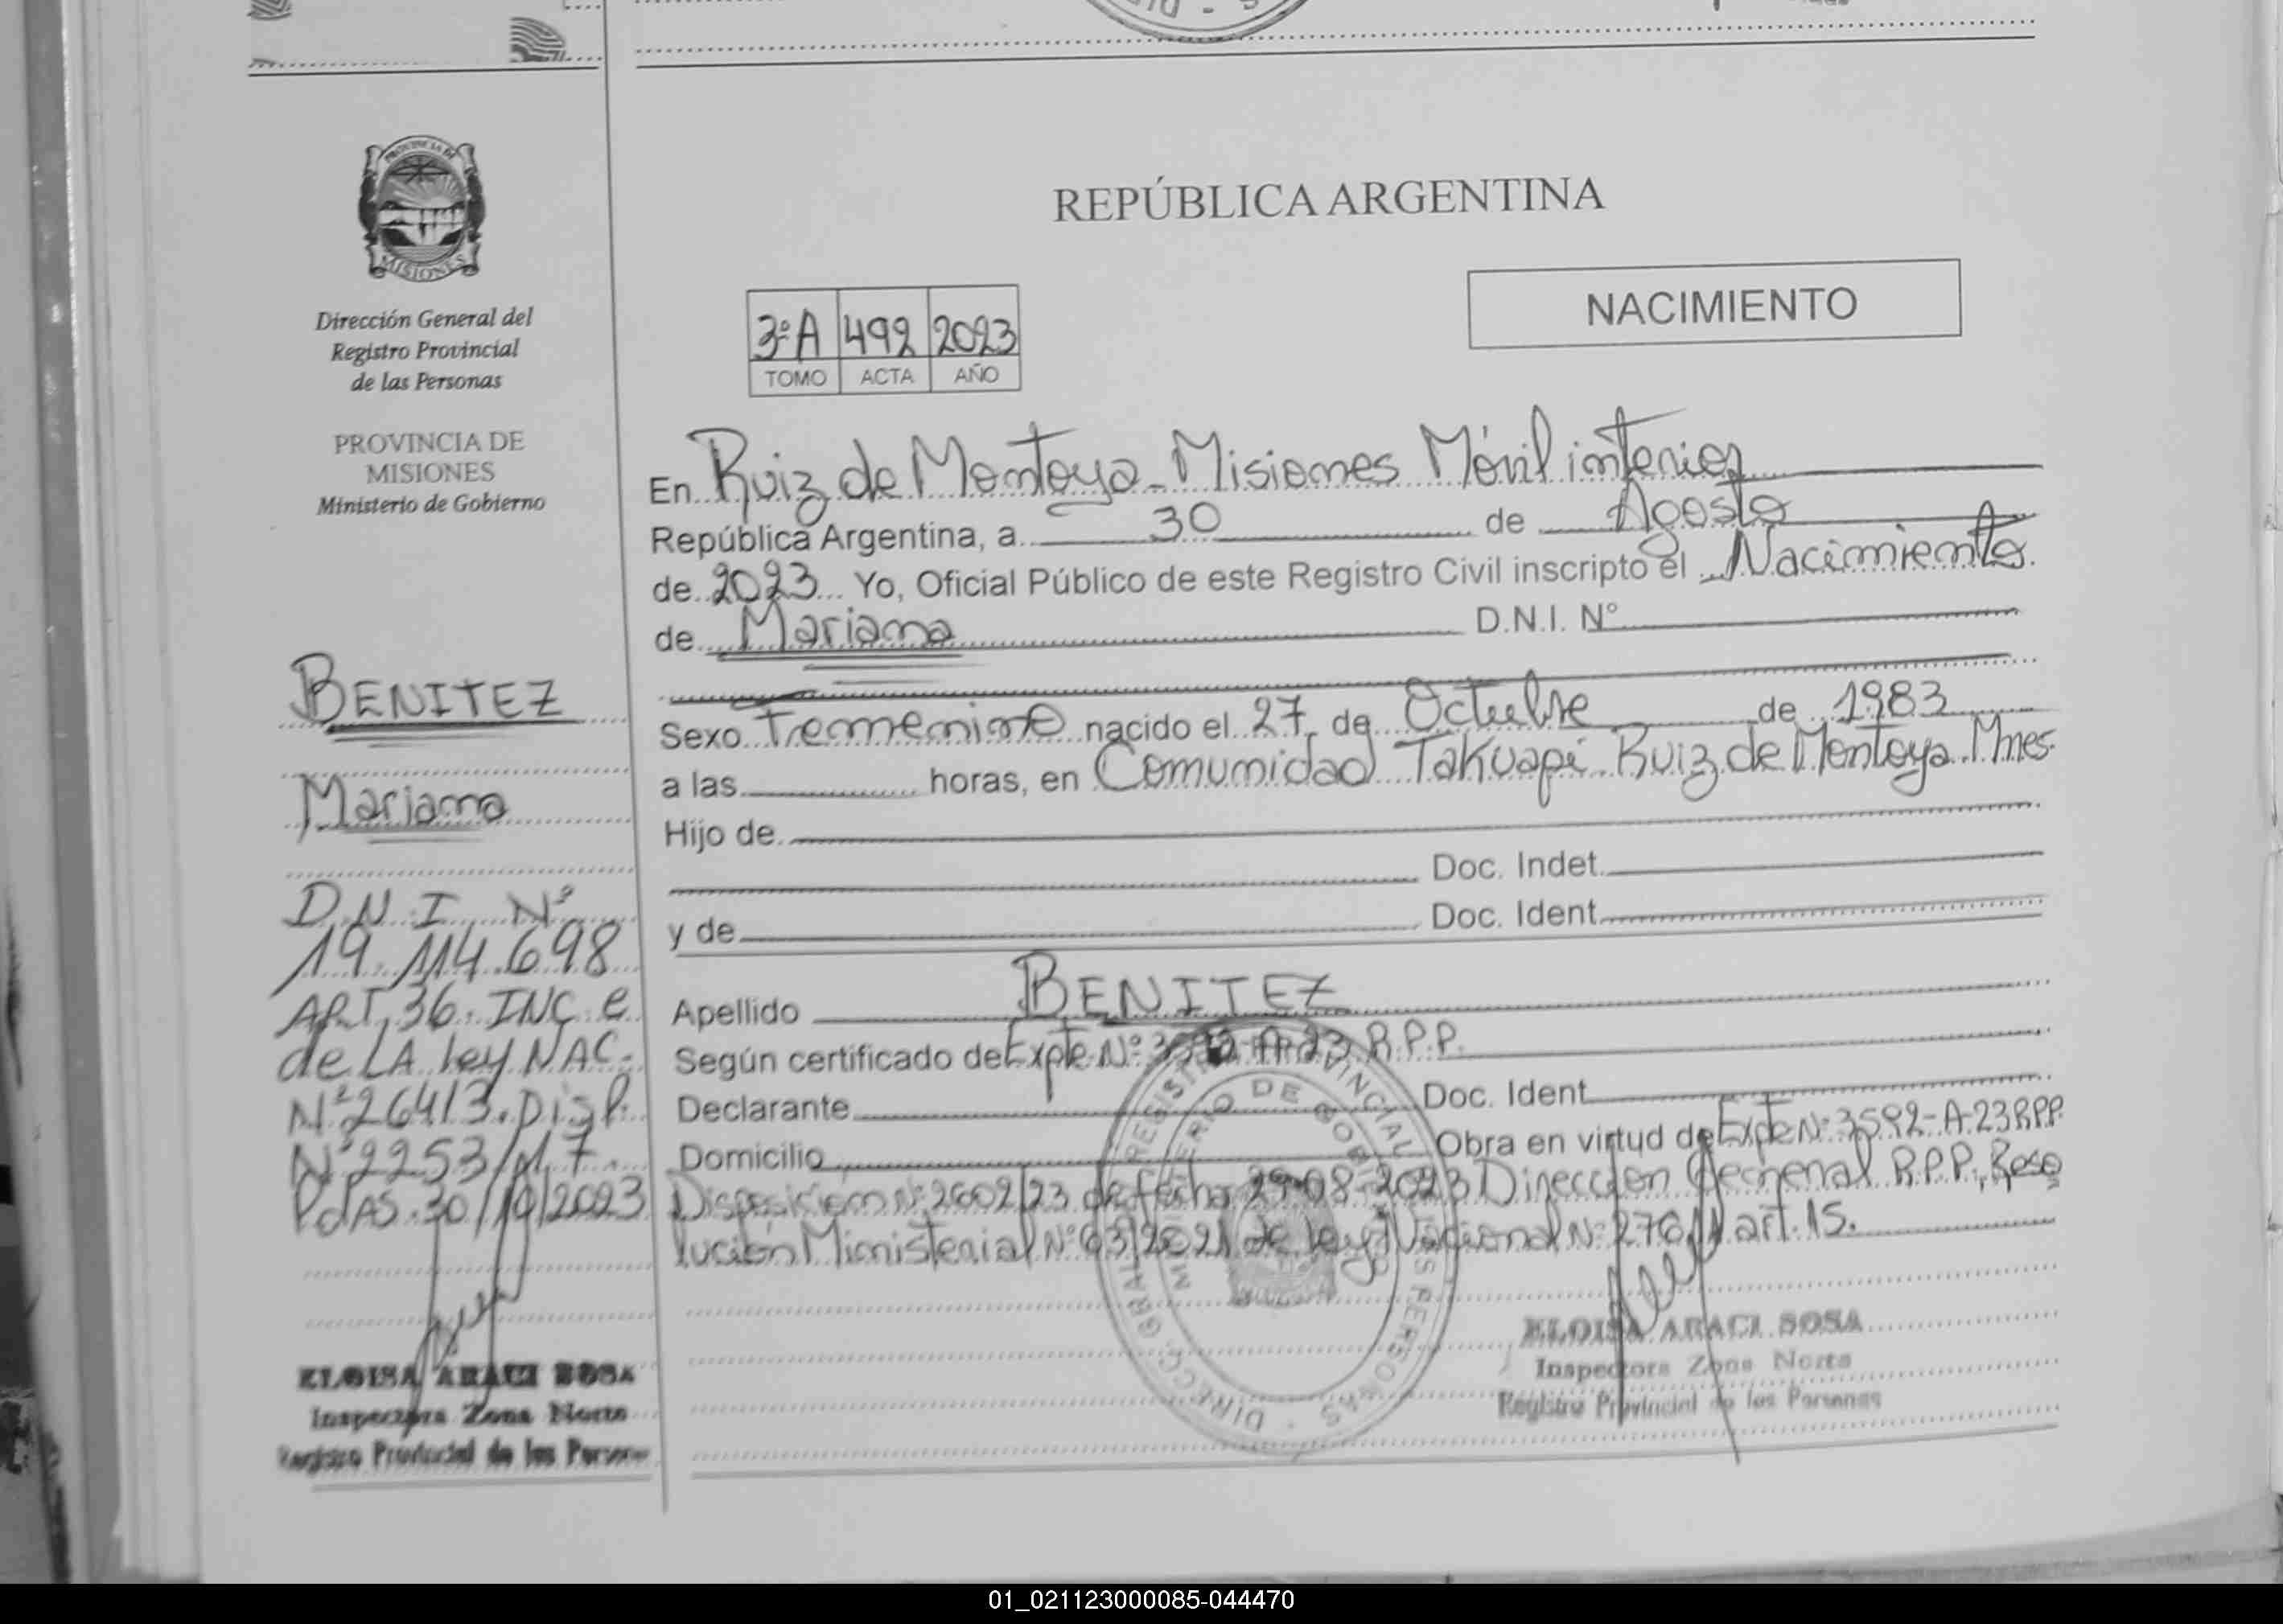 PROVINCIA DE
MISIONES
Dirección General del
Registro Provincial
de las Personas
PROVINCIA DE
MISIONES
Ministerio de Gobierno
BENITEZ
Mariana
D.N.I. Nº
19.114.698
ART. 36. INC. e
de LA ley NAC.
Nº 26413. Disp.
Nº 2253/17.
PdAS. 30/10/2023
ELOISA ARACI SOSA
Inspectora Zona Norte
Registro Provincial de las Persona
REPÚBLICA ARGENTINA
NACIMIENTO
3ºA 492 2023
TOMO ACTA AÑO
En Ruiz de Montoya - Misiones Móvil interior
República Argentina, a 30 de Agosto
de 2023 Yo, Oficial Público de este Registro Civil inscripto el Nacimiento
de Mariana D.N.I. Nº
Sexo Femenino nacido el 27 de Octubre de 1983
a las horas, en Comunidad Takuapi Ruiz de Montoya Mnes.
Hijo de
Doc. Indet.
y de Doc. Ident.
Apellido BENITEZ
Según certificado de Expte Nº 3592-A-23 R.P.P.
Declarante Doc. Ident.
Domicilio Obra en virtud de Expte Nº 3592-A-23 RPP
Disposición Nº 2602/23 de fecha 29-08-2023 Dirección General R.P.P, Reso
lución Ministerial Nº 63/2021 de Ley Nacional Nº 27611 art. 15.
DIRECC. GRAL. REGISTRO PROVINCIAL DE LAS PERSONAS
MINISTERIO DE GOBIERNO
ELOISA ARACI SOSA
Inspectora Zona Norte
Registro Provincial de las Personas
01_021123000085-044470